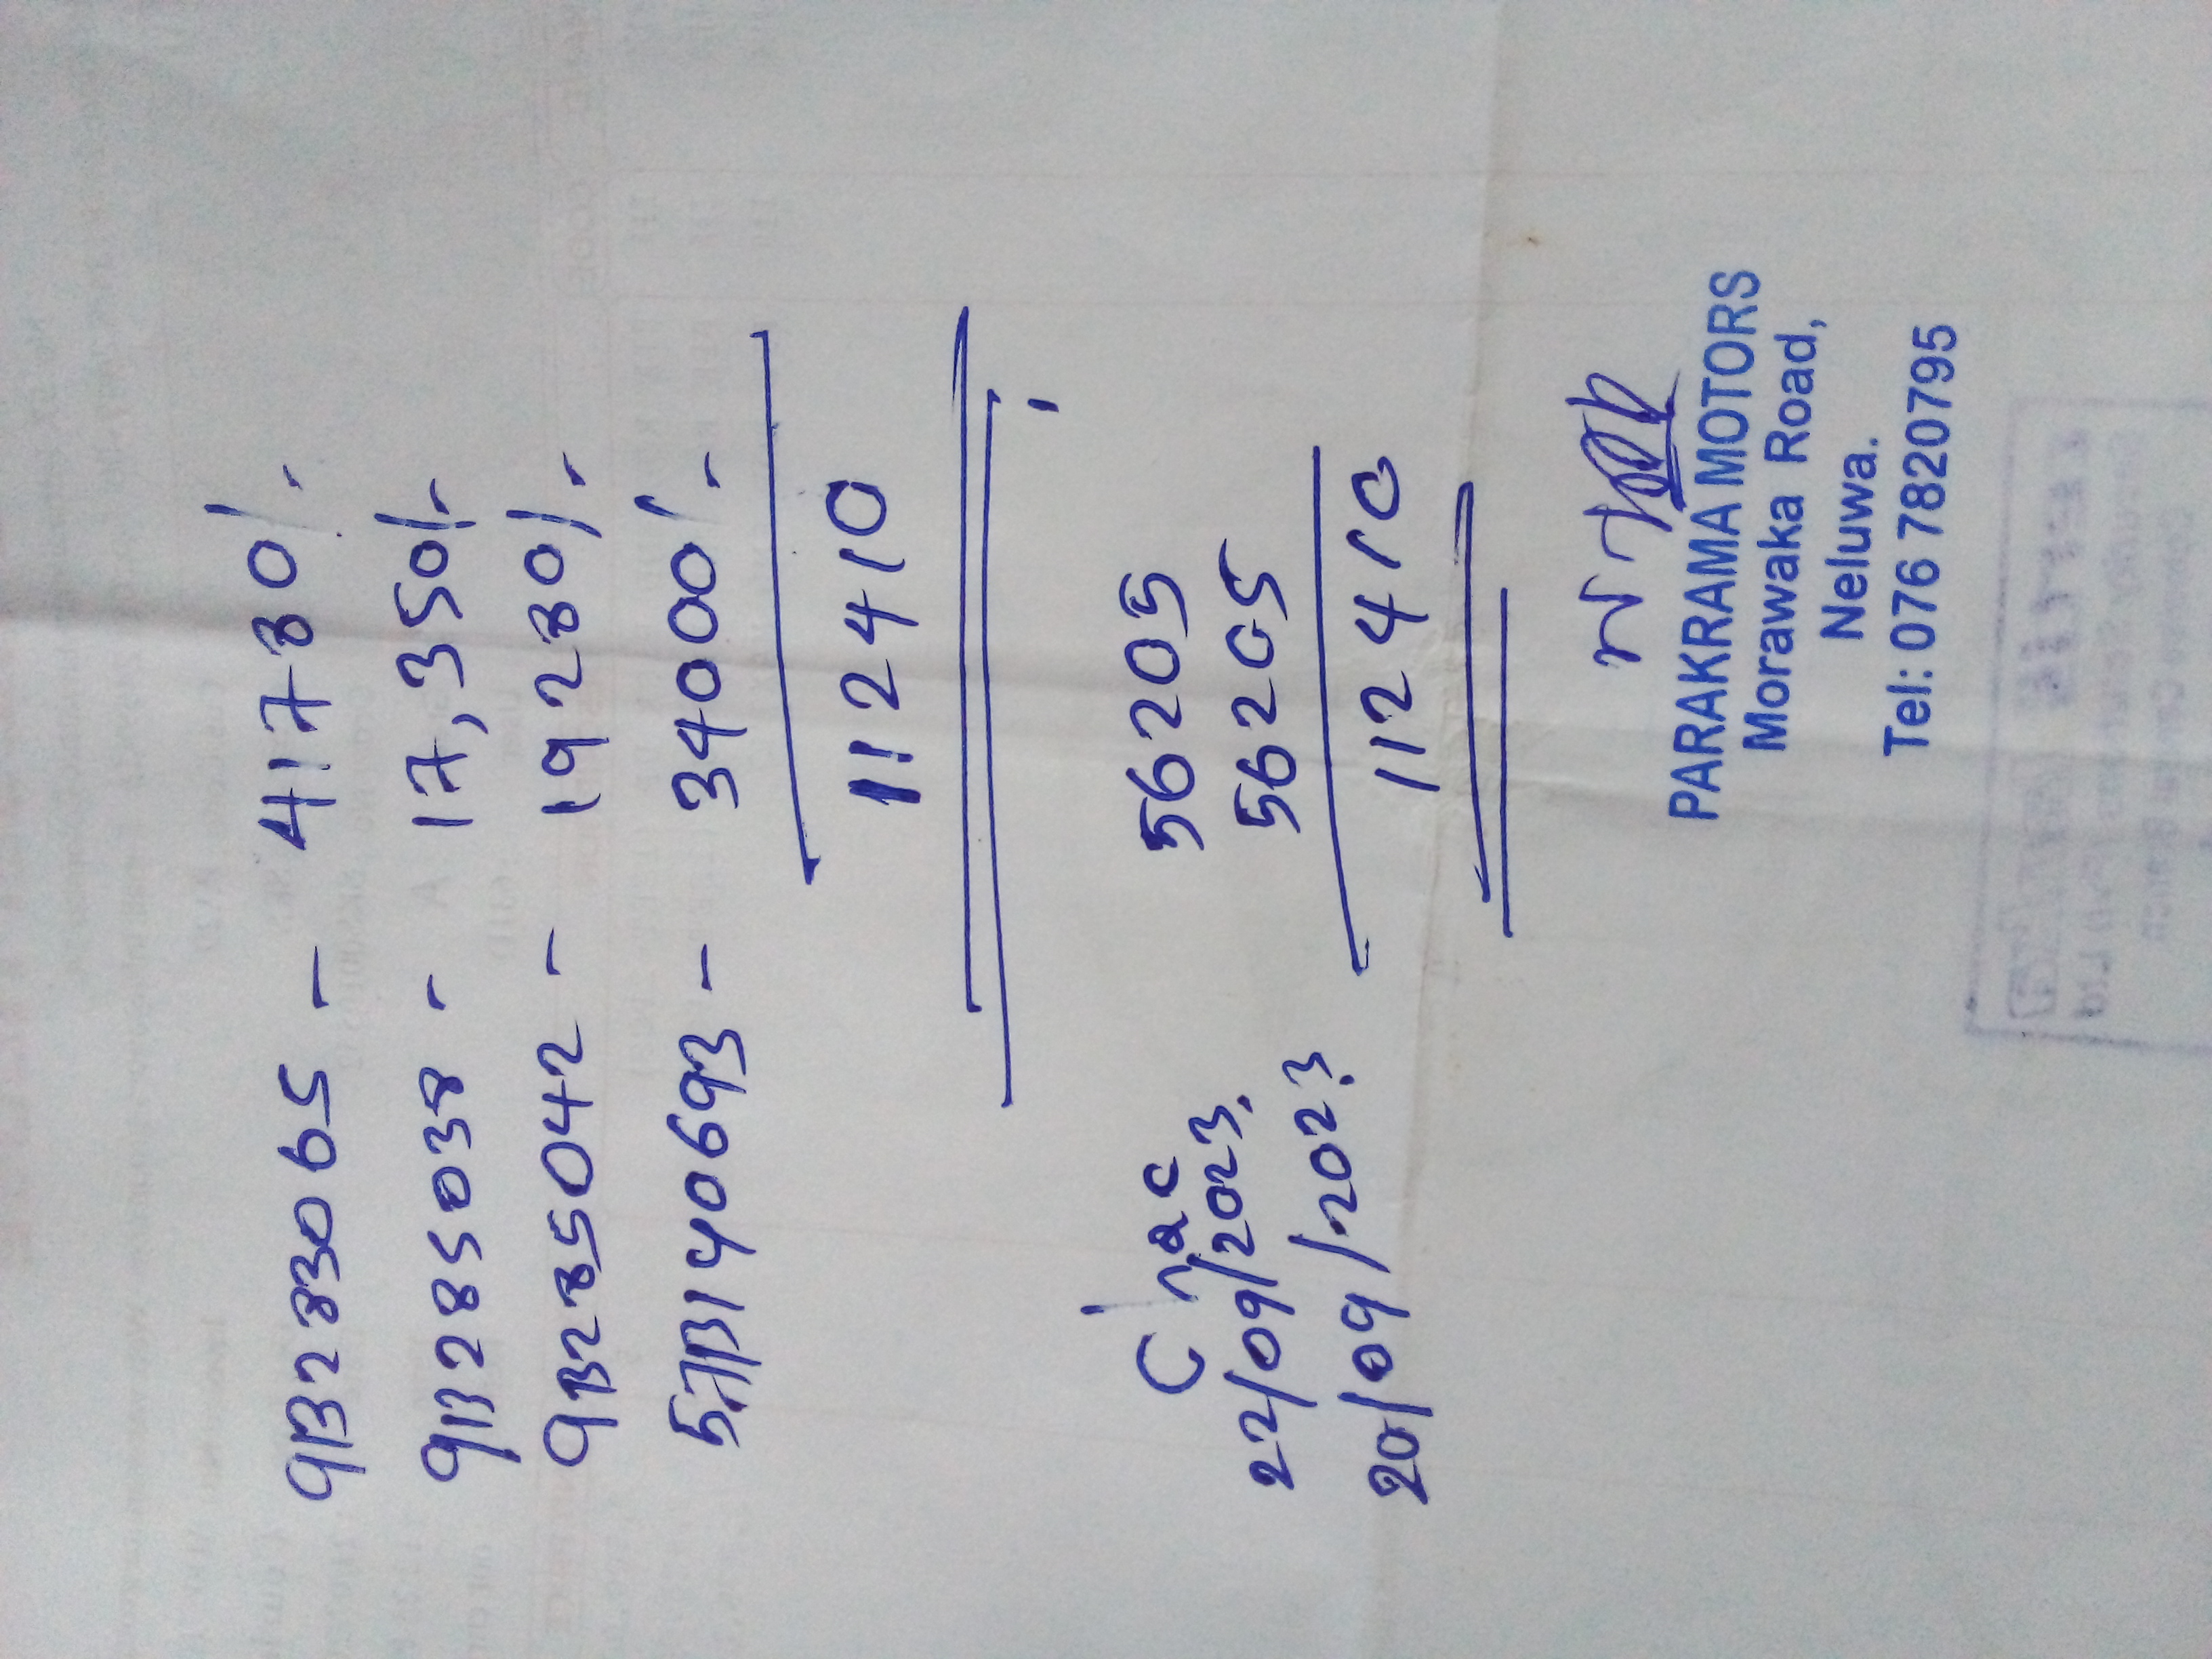 9B283065 - 41780/-
9B285038 - 17,350/-
9B285042 - 19280/-
57B140693 - 34000/-
112410
22/09/2023. 56205
20/09/2023 56205
112410
PARAKRAMA MOTORS
Morawaka Road,
Neluwa.
Tel: 076 7820795